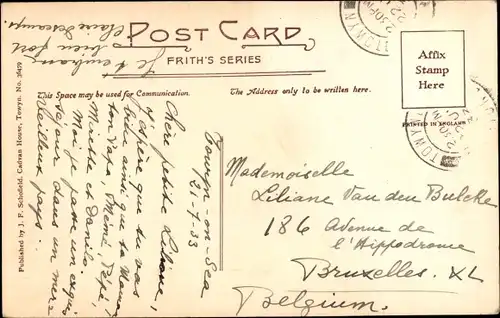 POST CARD
FRITH'S SERIES
This Space may be used for Communication.
The Address only to be written here.
Affix
Stamp
Here
PRINTED IN ENGLAND
TOWYN
2 30 PM
22
TOWYN
Published by J. F. Schofield, Cadvan House, Towyn. No. 76479
Towyn-on-Sea
21-7-33
Chère petite Liliane,
J'espère que tu vas
bien ainsi que ta Maman
ton Papa, Mémé, Pépé,
Mirette et Danile.
Moi je passe un exquis
séjour dans un mer-
veilleux pays...
Je t'embrasse
bien fort
Claire
Mademoiselle
Liliane Van den Bulcke
186 Avenue de
l'Hippodrome
Bruxelles. XL
Belgium.